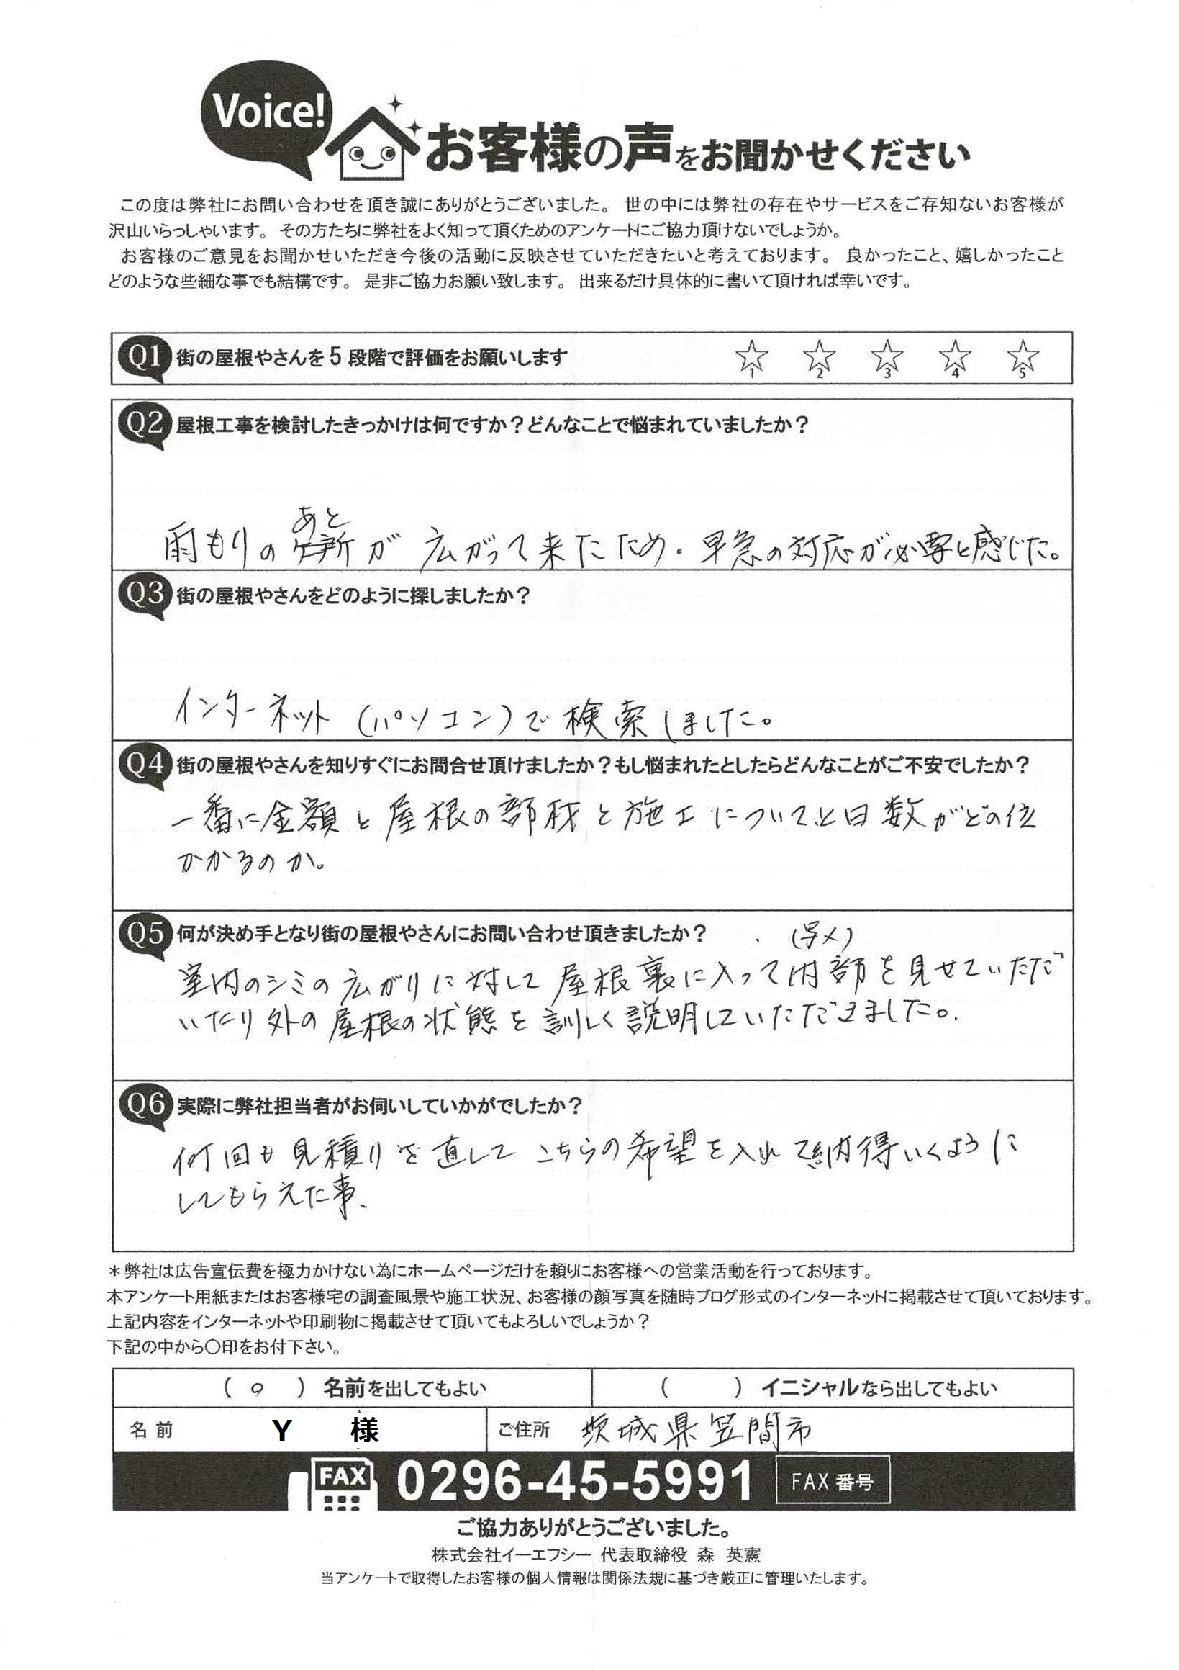 Voice!
お客様の声をお聞かせください
この度は弊社にお問い合わせを頂き誠にありがとうございました。 世の中には弊社の存在やサービスをご存知ないお客様が
沢山いらっしゃいます。 その方たちに弊社をよく知って頂くためのアンケートにご協力頂けないでしょうか。
お客様のご意見をお聞かせいただき今後の活動に反映させていただきたいと考えております。 良かったこと、嬉しかったこと
どのような些細な事でも結構です。 是非ご協力お願い致します。 出来るだけ具体的に書いて頂ければ幸いです。
Q1 街の屋根やさんを5段階で評価をお願いします ☆1 ☆2 ☆3 ☆4 ☆5
Q2 屋根工事を検討したきっかけは何ですか?どんなことで悩まれていましたか?
あと
雨もりの が 広がって来たため、早急の対応が必要と感じた。
Q3 街の屋根やさんをどのように探しましたか?
インターネット(パソコン)で検索しました。
Q4 街の屋根やさんを知りすぐにお問合せ頂けましたか?もし悩まれたとしたらどんなことがご不安でしたか?
一番に金額と屋根の部材と施工についてと日数がどの位
かかるのか。
Q5 何が決め手となり街の屋根やさんにお問い合わせ頂きましたか?
(写メ)
室内のシミの広がりに対して屋根裏に入って内部を見せていただ
いたり外の屋根の状態を詳しく説明していただきました。
Q6 実際に弊社担当者がお伺いしていかがでしたか?
何回も見積りを直してこちらの希望を入れて納得いくように
してもらえた事.
*弊社は広告宣伝費を極力かけない為にホームページだけを頼りにお客様への営業活動を行っております。
本アンケート用紙またはお客様宅の調査風景や施工状況、お客様の顔写真を随時ブログ形式のインターネットに掲載させて頂いております。
上記内容をインターネットや印刷物に掲載させて頂いてもよろしいでしょうか?
下記の中から○印をお付下さい。
( ○ ) 名前を出してもよい ( ) イニシャルなら出してもよい
名前 Y 様 ご住所 茨城県笠間市
FAX 0296-45-5991 FAX番号
ご協力ありがとうございました。
株式会社イーエフシー 代表取締役 森 英憲
当アンケートで取得したお客様の個人情報は関係法規に基づき厳正に管理いたします。